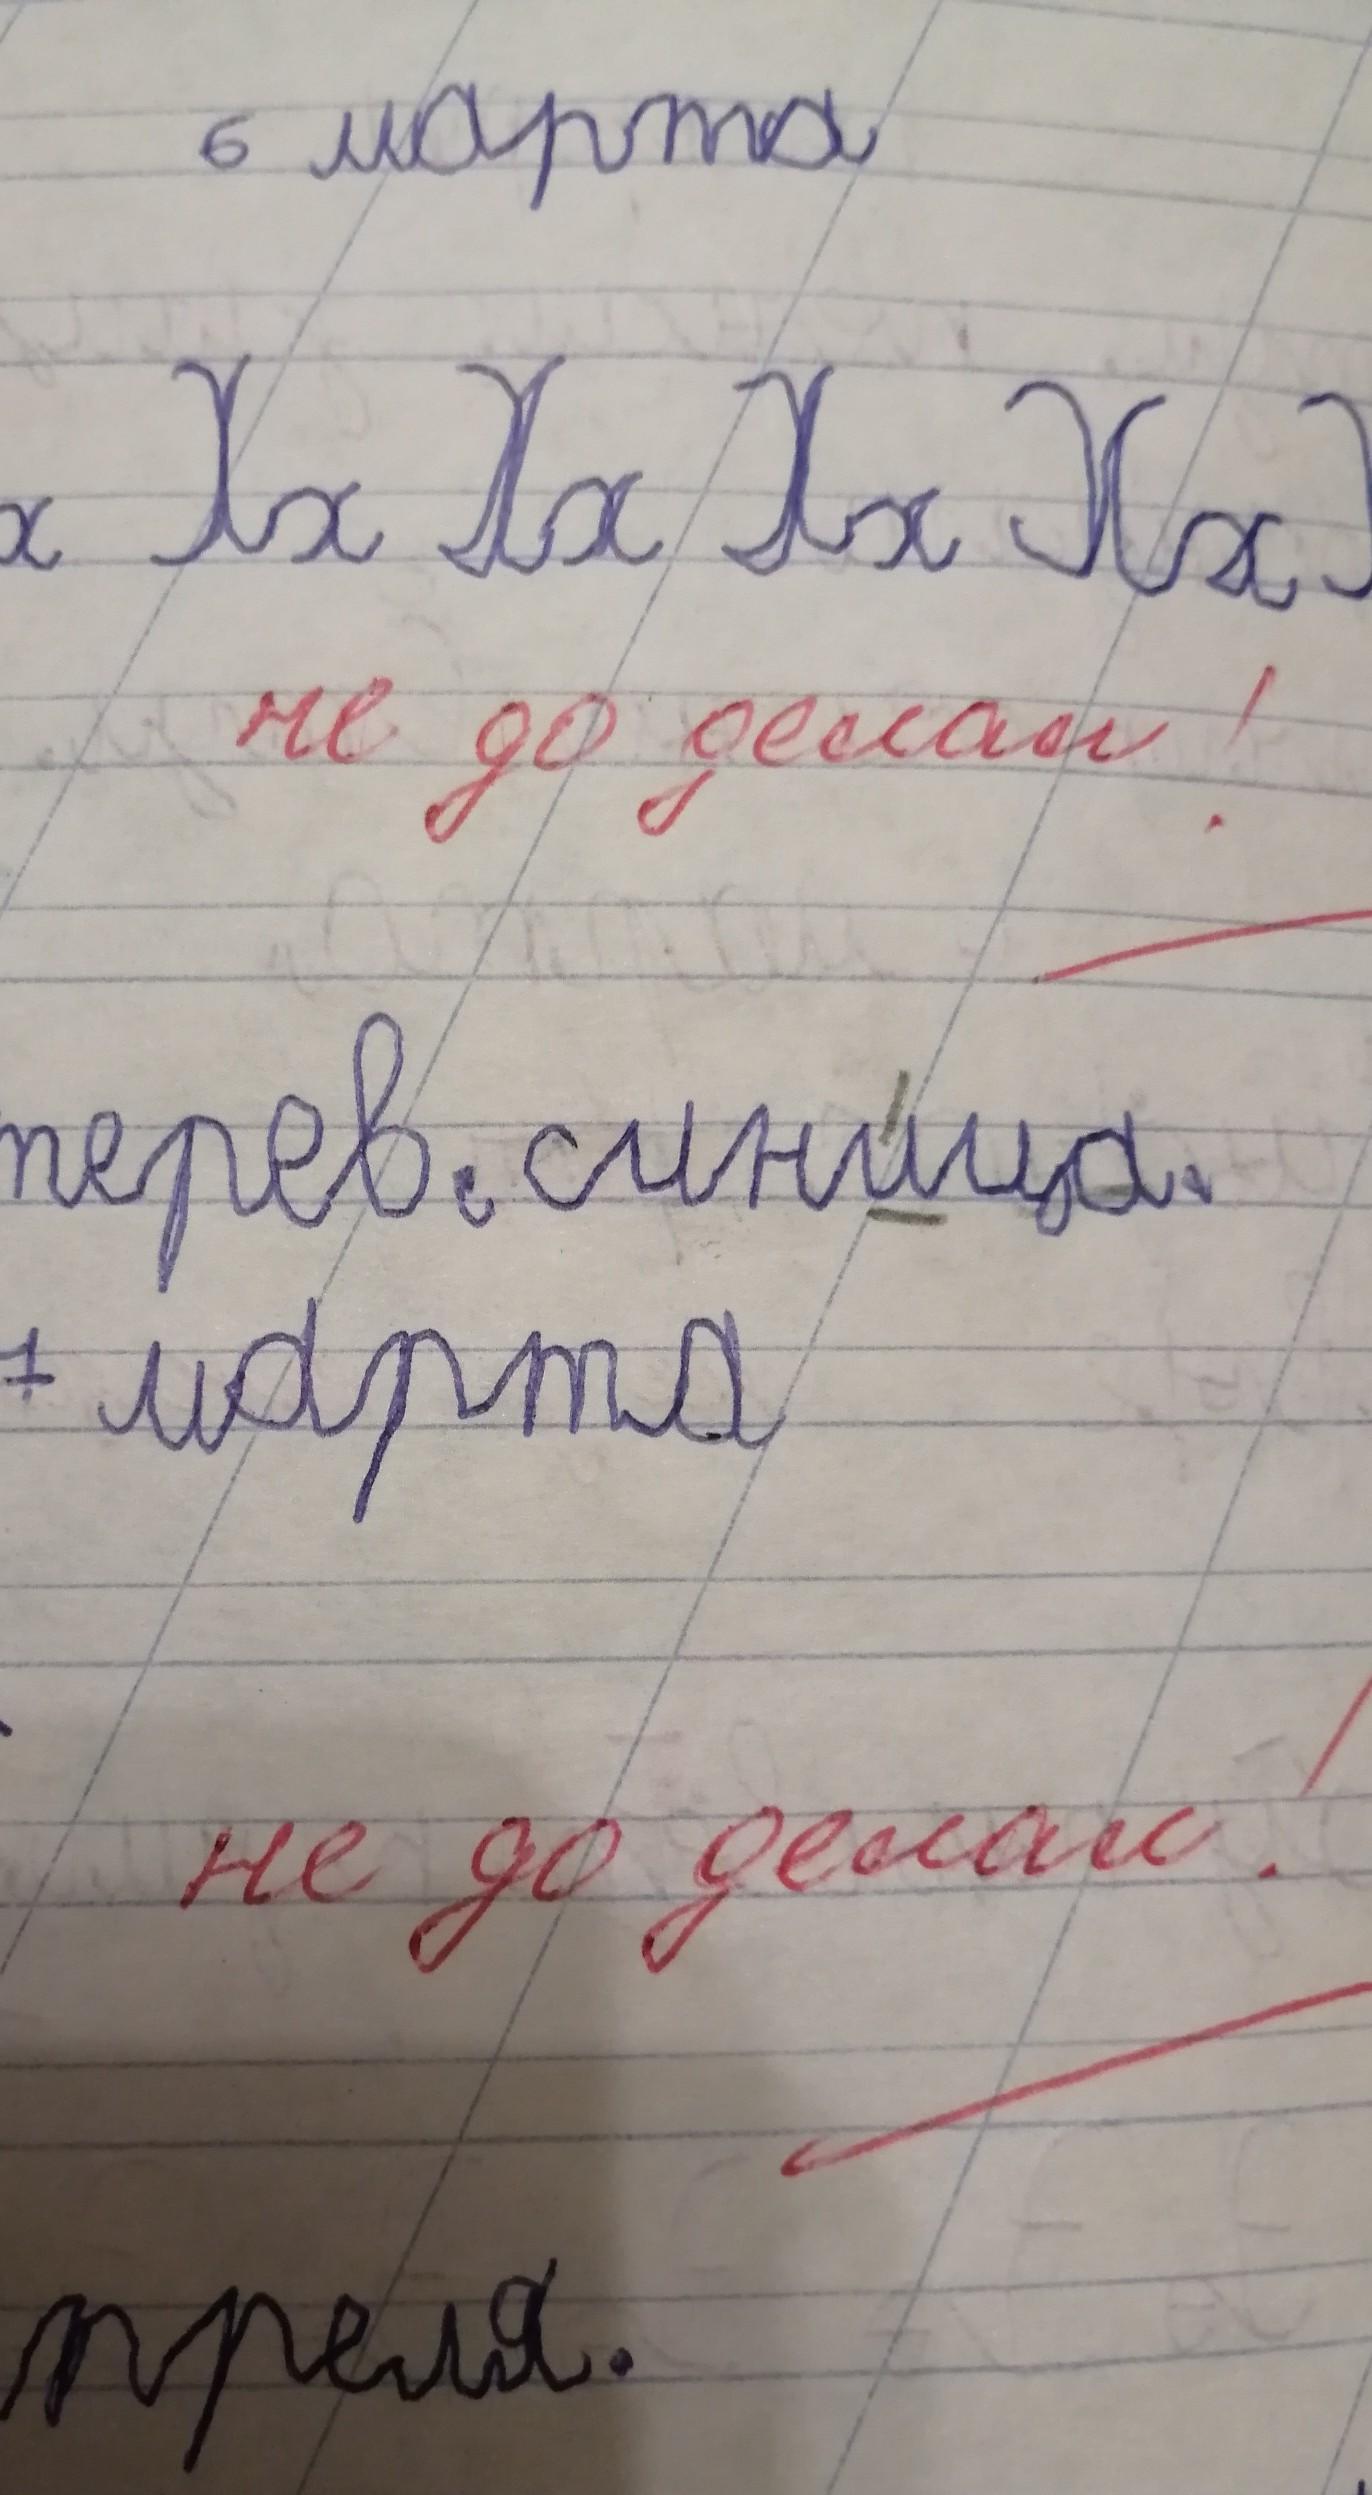 6 марта
х Хх Хх Хх Хх
не до делал!
терев. синица.
7 марта
не до делал!
преля.